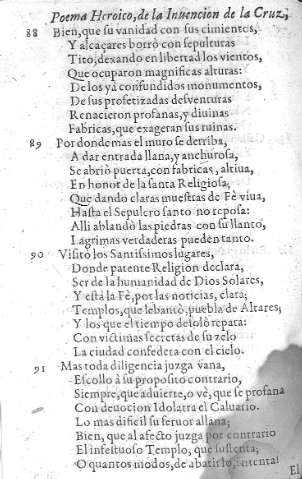 Poema Heroico, de la Inuencion de la Cruz,
88 Bien, que su vanidad con sus cimientos,
Y alcaçares borrò con sepulturas
Tito, dexando en libertad los vientos,
Que ocuparon magnificas alturas:
De los yà confundidos monumentos,
De sus profetizadas desventuras
Renacieron profanas, y diuinas
Fabricas, que exageran sus ruinas.
89 Por donde mas el muro se derriba,
A dar entrada llana, y anchurosa,
Se abriò puerta, con fabricas, altiua,
En honor de la santa Religiosa;
Que dando claras muestras de Fè viua,
Hasta el Sepulcro santo no reposa:
Alli ablandò las piedras con su llanto,
Lagrimas verdaderas pueden tanto.
90 Visitò los Santissimos lugares,
Donde patente Religion declara,
Ser de la humanidad de Dios Solares,
Y està la Fè, por las noticias, clara;
Templos, que lebantò, puebla de Altares;
Y los que el tiempo desolò repara:
Con victimas secretas de su zelo
La ciudad confedera con el cielo.
91 Mas toda diligencia juzga vana,
Escollo à su proposito contrario,
Siempre, que aduierte, o vè, que se profana
Con deuocion Idolatra el Caluario.
Lo mas dificil su feruor allana;
Bien, que al afecto juzga por contrario
El infestuoso Templo, que sustenta;
O quantos modos, de abatirlo, intenta!
El